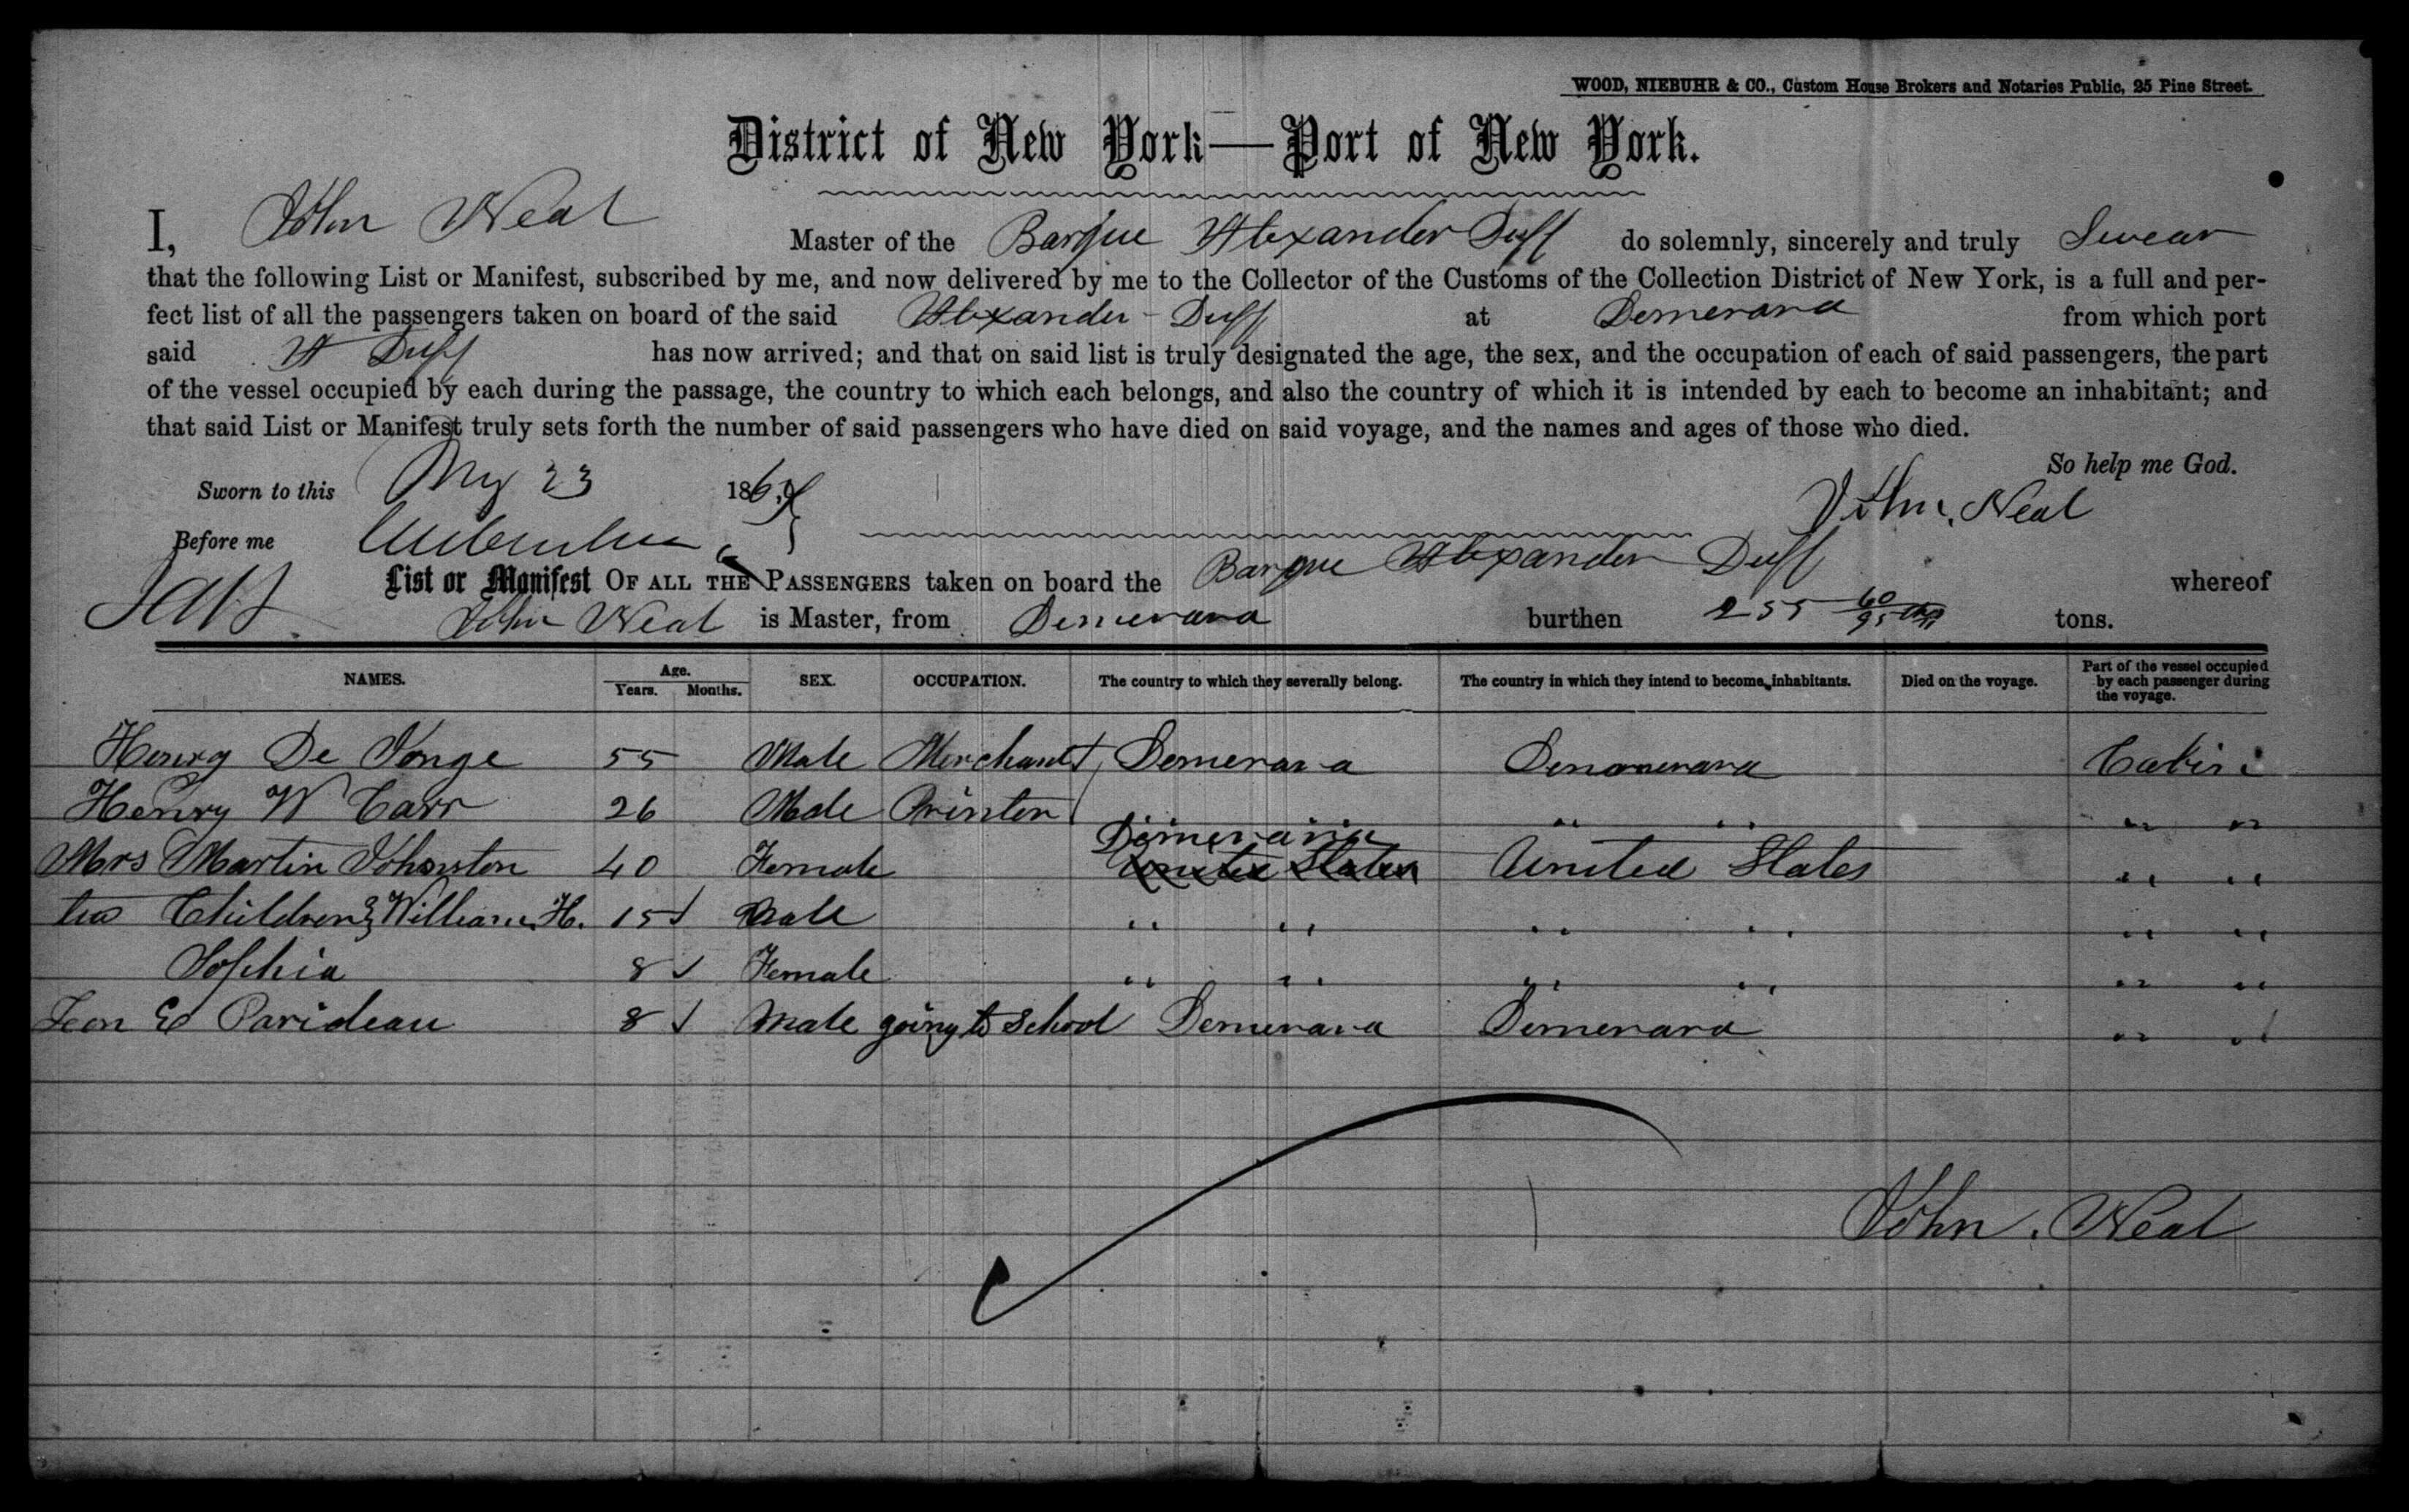 WOOD, NIEBUHR & CO., Custom House Brokers and Notaries Public, 25 Pine Street.
District of New York—Port of New York.
I, John Neal Master of the Barque Alexander Duff do solemnly, sincerely and truly Swear
that the following List or Manifest, subscribed by me, and now delivered by me to the Collector of the Customs of the Collection District of New York, is a full and per-
fect list of all the passengers taken on board of the said Alexander Duff at Demerara from which port
said A Duff has now arrived; and that on said list is truly designated the age, the sex, and the occupation of each of said passengers, the part
of the vessel occupied by each during the passage, the country to which each belongs, and also the country of which it is intended by each to become an inhabitant; and
that said List or Manifest truly sets forth the number of said passengers who have died on said voyage, and the names and ages of those who died.
So help me God.
Sworn to this 23 186
John Neal
Before me
List or Manifest OF ALL THE PASSENGERS taken on board the Barque Alexander Duff whereof
John Neal is Master, from Demerara burthen 255 60/95 tons.
NAMES. Age. Years. Months. SEX. OCCUPATION. The country to which they severally belong. The country in which they intend to become inhabitants. Died on the voyage. Part of the vessel occupied by each passenger during the voyage.
Henry De Jonge 55 Male Merchant Demerara Demerara Cabin
Henry W Carr 26 Male Printer " " " "
Demerara
Mrs Martin Johnston 40 Female United States United States " "
two Children William H. 15 Male " " " " " "
Sophia 8 Female " " " " " "
Leon E Parideau 8 Male going to School Demerara Demerara " "
John Neal